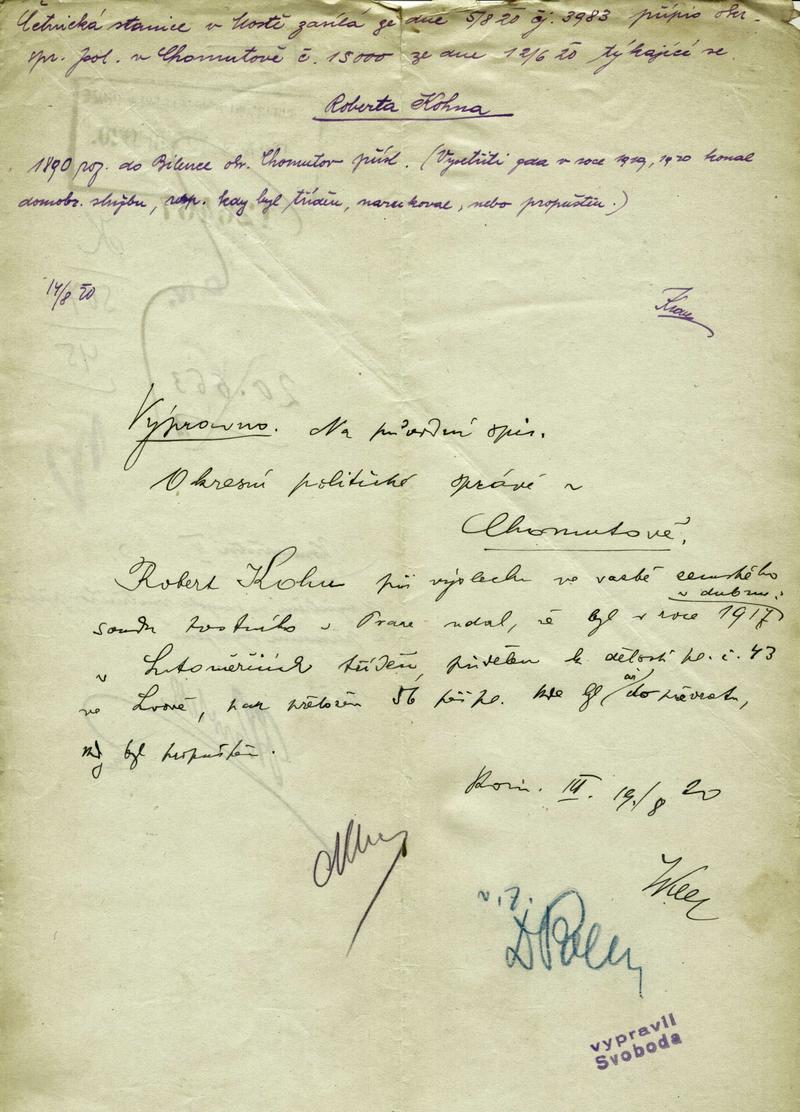 Četnická stanice v Mostě zasílá ze dne 5/8 20 čj. 3983 přípis okr.
spr. pol. v Chomutově č. 15000 ze dne 12/6 20 týkající se
Roberta Kohna
1890 roz. do Bílence okr. Chomutov přísl. (Vyšetřiti kde v roce 1919, 1920 konal
domobr. službu, resp. kdy byl tříděn, narukoval, nebo propuštěn.)
14/8 20
Výpravno. Na původní spis.
Okresní politické správě v
Chomutově.
Robert Kohn při výslechu ve vazbě zemského
v dubnu
soudu trestního v Praze udal, že byl v roce 1917
v Litoměřicích tříděn, přidělen k pl. č. 43
ve Lvově, pak přeložen 56 pěš. pl. kde byl až do převratu,
kdy byl propuštěn.
III. 19/8 20
D
vypravil
Svoboda